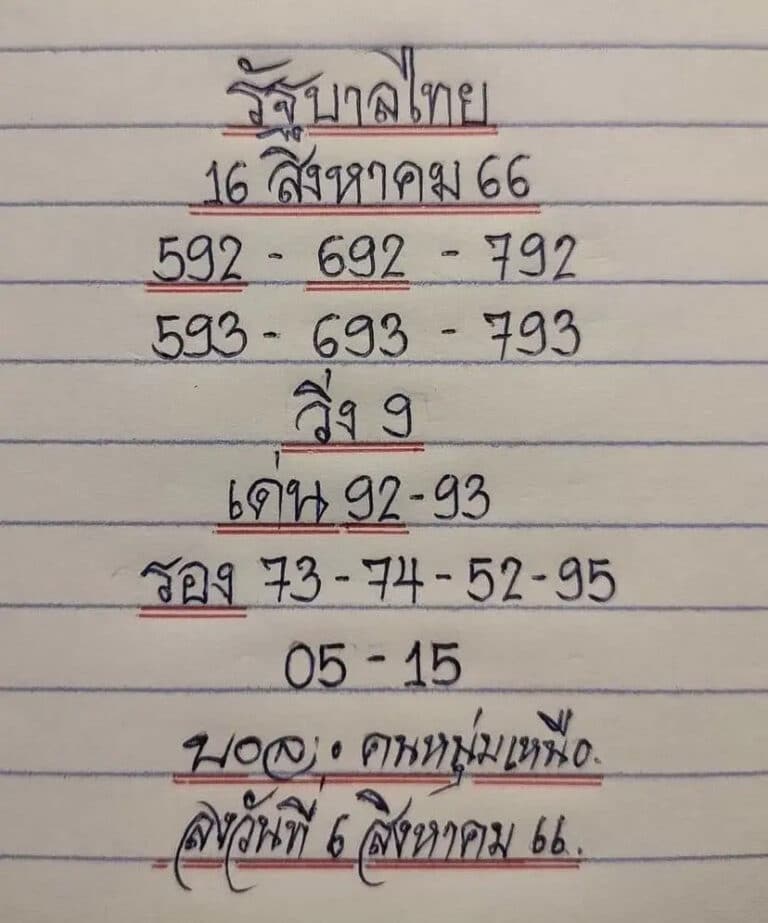 รัฐบาลไทย
16 สิงหาคม 66
592 - 692 - 792
593 - 693 - 793
วิ่ง 9
เด่น 92-93
รอง 73-74-52-95
05-15
คนหนุ่มเหนือ.
ลงวันที่ 6 สิงหาคม 66.